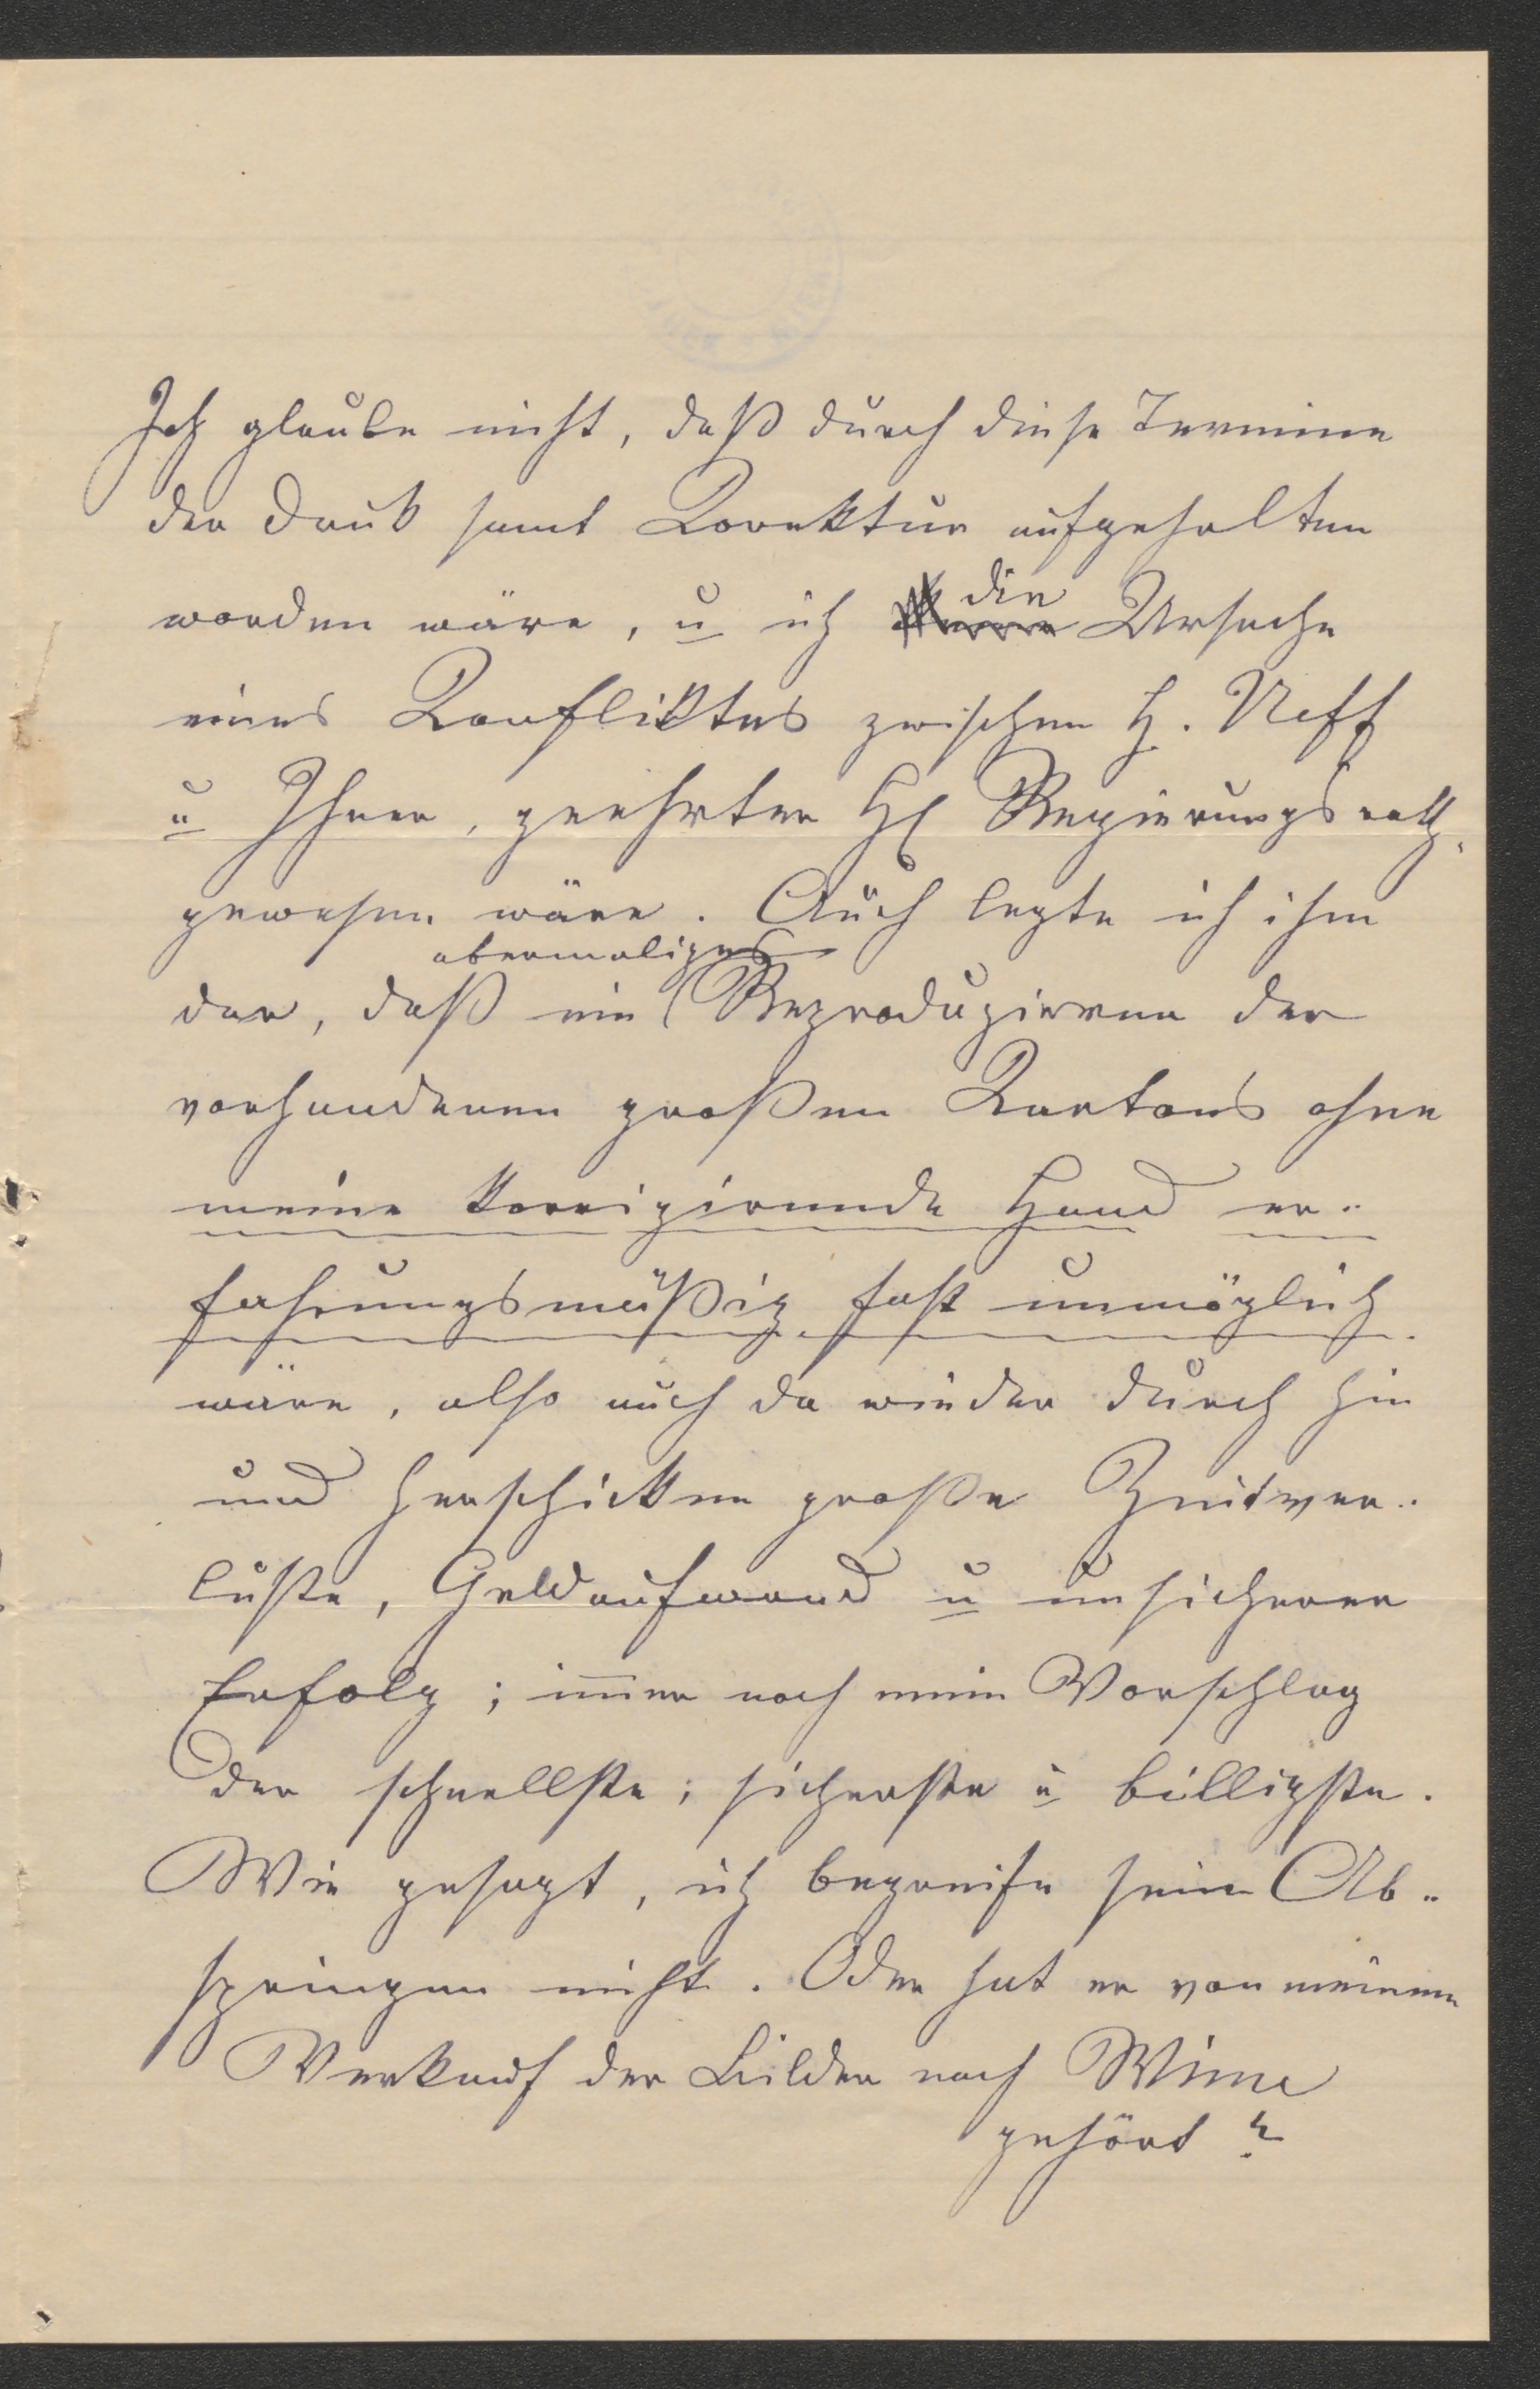 Ich glaube nicht, daß durch diese Termine
der Druk samt Korektur aufgehalten
worden wäre, u ich die Ursache
eines Konfliktes zwischen H. Neff
u Ihnen, geehrter H Regierungsrath,
gewesen wäre. Auch legte ich ihm
dar, daß ein abermaliges Reproduzieren der
vorhandenen großen Kartons ohne
meine korrigirende Hand er-
fahrungsmäßig fast unmöglich
wäre, also auch da wieder durch hin
und herschicken große Zeitver-
luste, Geldaufwand u unsicherer
Erfolg; im̄er noch mein Vorschlag
der schnellste; sicherste u billigste.
Wie gesagt, ich begreife sein Ab-
springen nicht. Oder hat er von meinem
Verkauf der Bilder nach Wien
gehört?